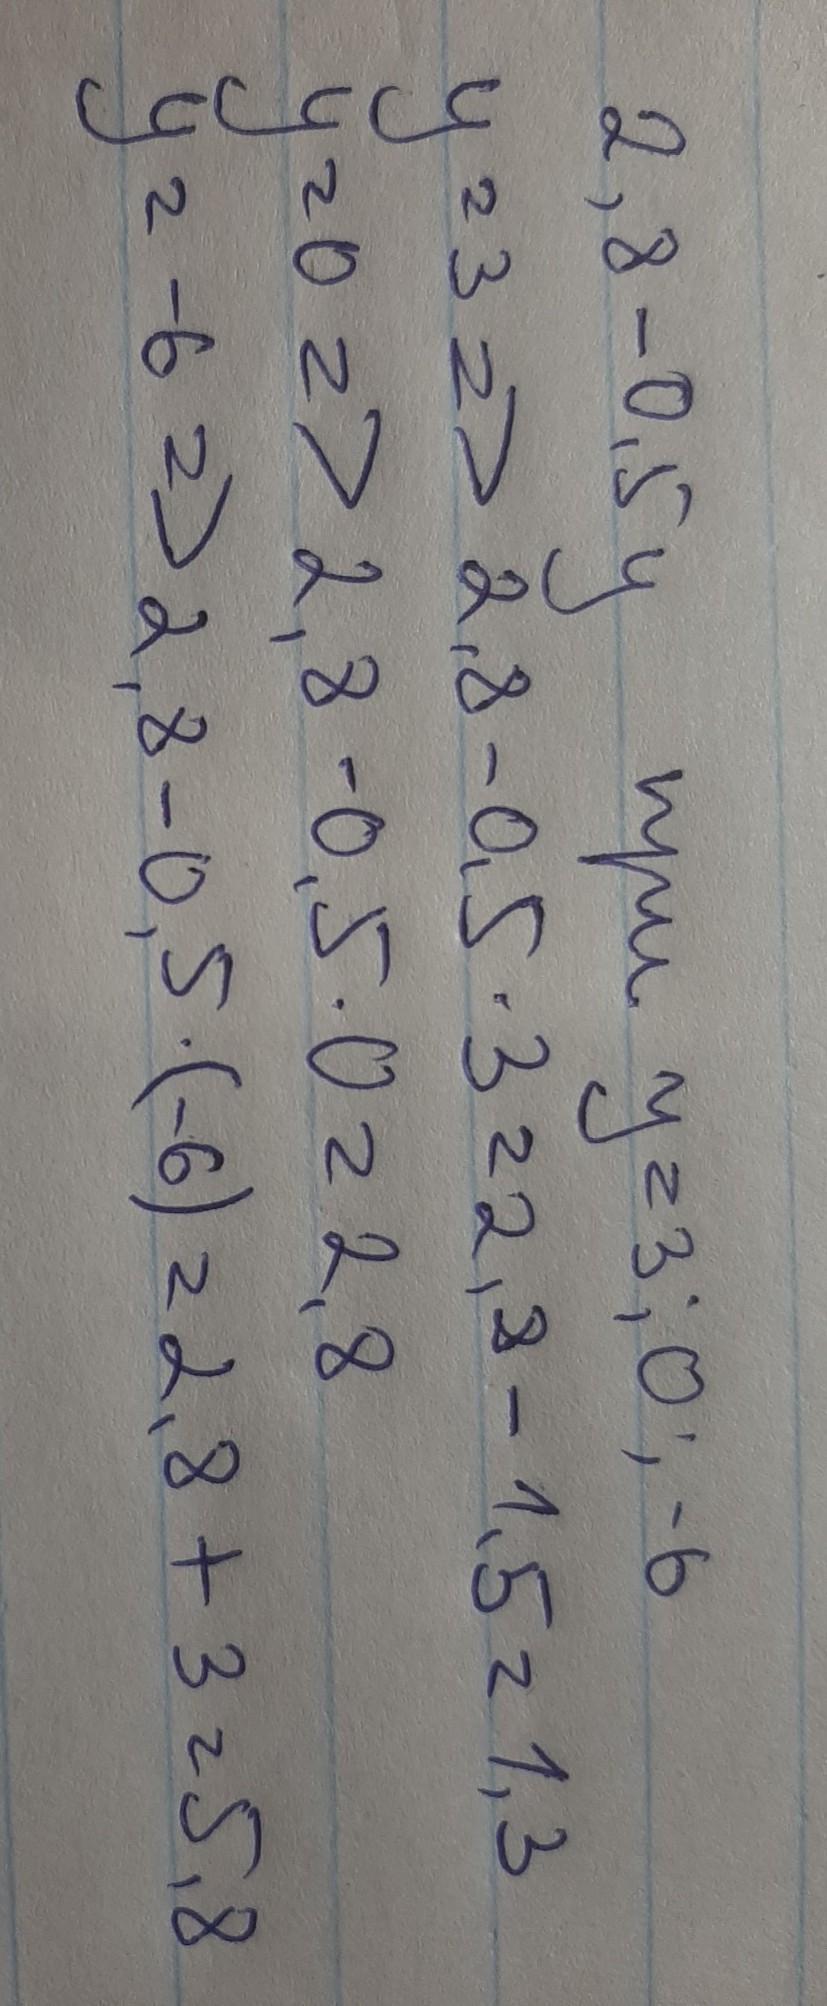 2,8-0,5y при y=3; 0; -6
y=3 => 2,8-0,5·3=2,8-1,5=1,3
y=0 => 2,8-0,5·0=2,8
y=-6 => 2,8-0,5·(-6)=2,8+3=5,8